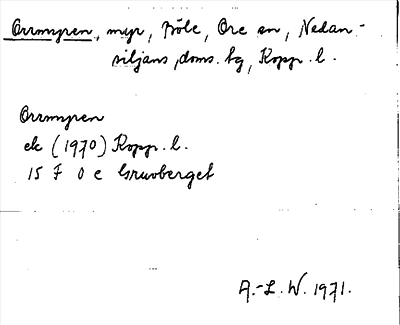 Orrmyren, myr, Böle, Ore sn, Nedan-
siljans doms. hg, Kopp. l.
Orrmyren
ek (1970) Kopp. l.
15 F 0 e Gruvberget
A.-L. W. 1971.